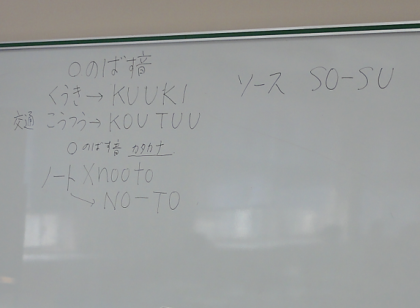 ○のばす音
くうき→KUUKI
交通 こうつう→KOUTUU
○のばす音 カタカナ
ノート Xnooto
→NO-TO
ソース SO-SU